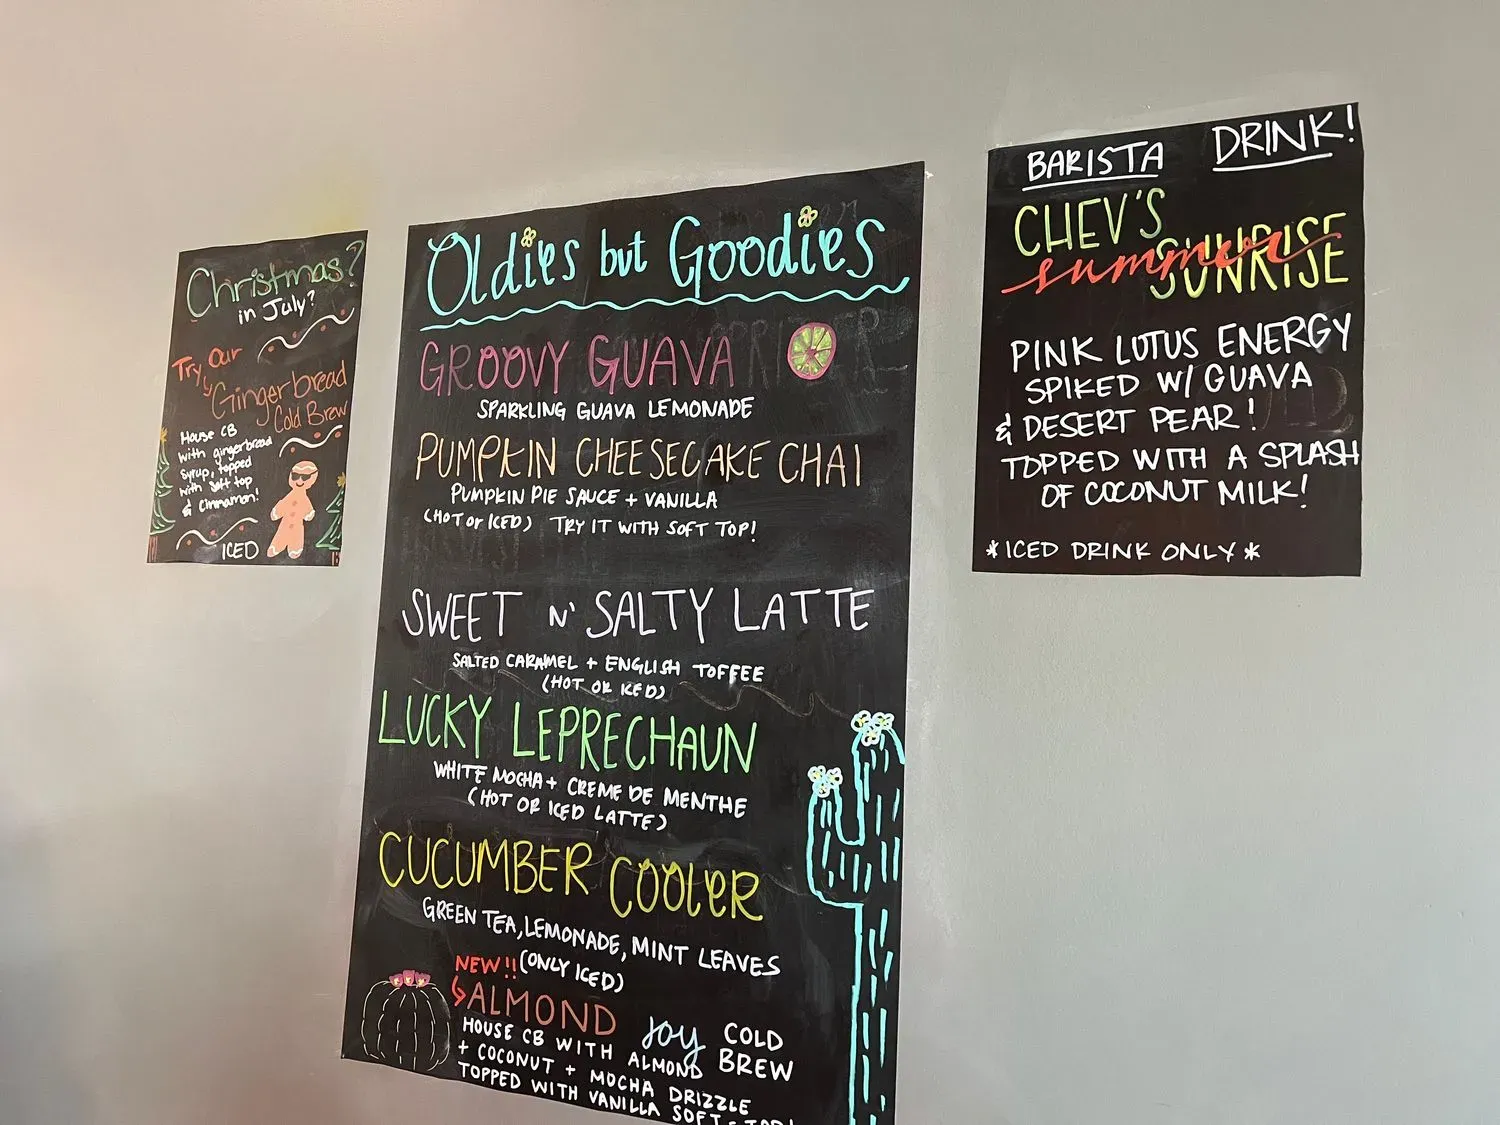 Christmas?
in July?
Try our
Gingerbread
Cold Brew
House CB
with gingerbread
syrup, topped
with soft top
& cinnamon!
ICED
Oldies but Goodies
GROOVY GUAVA
SPARKLING GUAVA LEMONADE
PUMPKIN CHEESECAKE CHAI
PUMPKIN PIE SAUCE + VANILLA
(HOT or ICED) TRY IT WITH SOFT TOP!
SWEET N' SALTY LATTE
SALTED CARAMEL + ENGLISH TOFFEE
(HOT OR ICED)
LUCKY LEPRECHAUN
WHITE MOCHA + CREME DE MENTHE
(HOT OR ICED LATTE)
CUCUMBER COOLER
GREEN TEA, LEMONADE, MINT LEAVES
(ONLY ICED)
NEW!!
ALMOND JOY COLD BREW
HOUSE CB WITH ALMOND
+ COCONUT + MOCHA DRIZZLE
TOPPED WITH VANILLA SOFT TOP!
BARISTA DRINK!
CHEV'S
summer
SUNRISE
SUNRISE
PINK LOTUS ENERGY
SPIKED W/ GUAVA
& DESERT PEAR!
TOPPED WITH A SPLASH
OF COCONUT MILK!
*ICED DRINK ONLY*